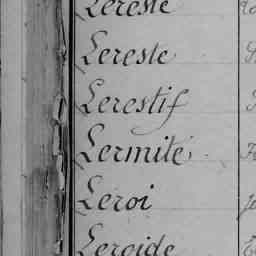 Lereste
Lereste
Lerestif
Lermite
Leroi
Leroide